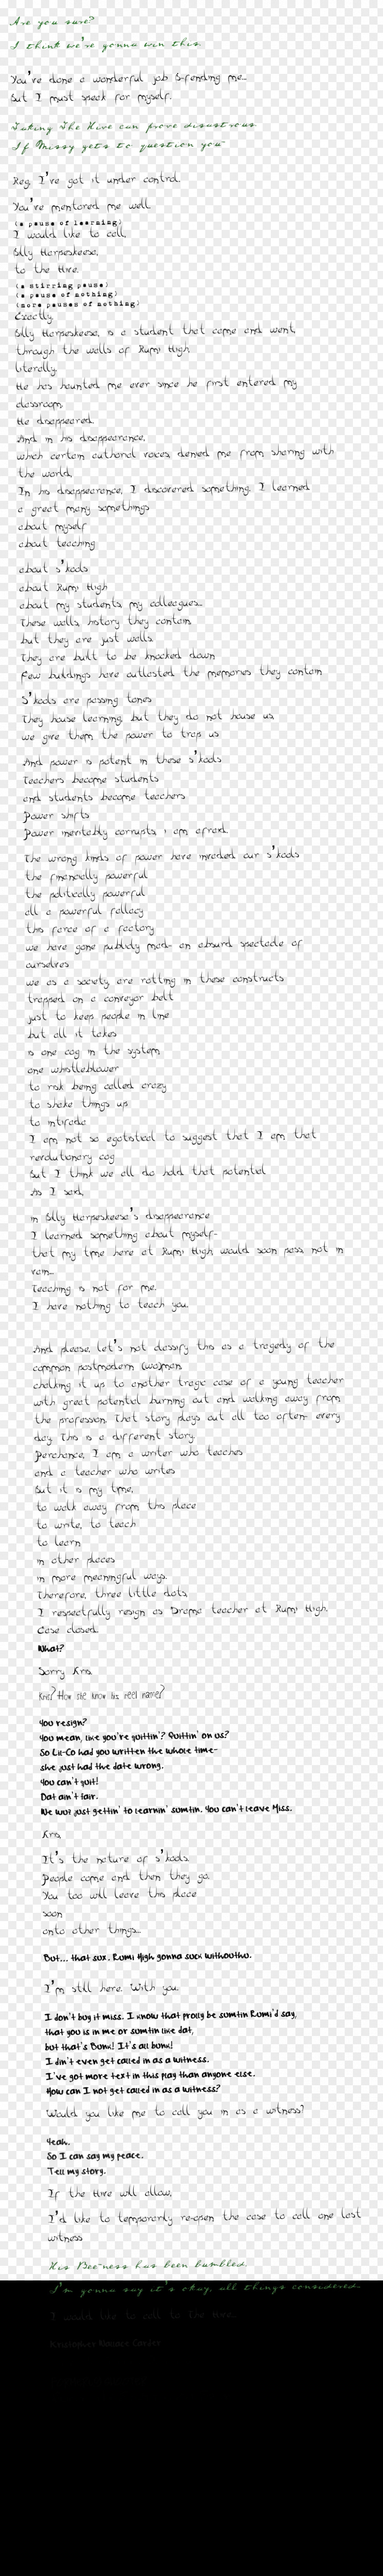 Are you sure?
I think we're gonna win this.
You've done a wonderful job B-fending me...
But I must speak for myself.
Taking The Hive can prove disastrous
If Missy gets to question you-
Reg, I've got it under control.
You've mentored me well.
(a pause of learning)
I would like to call,
Billy Harpeskeese,
to the Hive.
(a stirring pause)
(a pause of nothing)
(more pauses of nothing)
Exactly.
Billy Harpeskeese, is a student that came and went,
through the walls of Rumi High
literally.
He has haunted me ever since he first entered my
classroom.
He disappeared.
And in his disappearance,
which certain authorial voices denied me from sharing with
the world,
In his disappearance, I discovered something. I learned
a great many somethings
about myself
about teaching
about s'kools
about Rumi High
about my students, my colleagues...
These walls, history they contain
but they are just walls.
They are built to be knocked down
Few buildings have outlasted the memories they contain
S'kools are passing tones
They house learning, but they do not house us
we give them the power to trap us
And power is potent in these s'kools
Teachers become students
and students become teachers
Power shifts
Power inevitably corrupts, i am afraid.
The wrong kinds of power have invaded our s'kools
the financially powerful
the politically powerful
all a powerful fallacy
this farce of a factory
we have gone publicly mad- an absurd spectacle of
ourselves
we as a society are rotting in these constructs
trapped on a conveyor belt
just to keep people in line
but all it takes
is one cog in the system,
one whistleblower
to risk being called crazy
to shake things up
to intirade
I am not so egotistical to suggest that I am that
revolutionary cog
But I think we all do hold that potential
As I said,
in Billy Harpeskeese's disappearance
I learned something about myself-
that my time here at Rumi High would soon pass, not in
vain...
Teaching is not for me.
I have nothing to teach you.
And please, let's not classify this as a tragedy of the
common postmodern (wo)man
chalking it up to another tragic case of a young teacher
with great potential burning out and walking away from
the profession. That story plays out all too often- every
day. This is a different story.
Perchance, I am a writer who teaches
and a teacher who writes
But it is my time,
to walk away from this place
to write, to teach
to learn
in other places
in more meaningful ways.
Therefore, three little dots,
I respectfully resign as Drama teacher at Rumi High.
Case closed.
What?
Sorry Kris.
Kris? How she know his reel name?
You resign?
You mean, like you're quittin'? Quittin' on us?
So Lit-Co had you written the whole time-
she just had the date wrong.
You can't quit!
Dat ain't fair.
We wuz just gettin' to learnin' sumtin. You can't leave Miss.
Kris,
It's the nature of s'kools.
People come and then they go.
You too will leave this place
soon
onto other things...
But... that sux. Rumi High gonna suck withouthu.
I'm still here. With you.
I don't buy it miss. I know that prolly be sumtin Rumi'd say,
that you is in me or sumtin like dat,
but that's Bunk! It's all bunk!
I din't even get called in as a witness.
I've got more text in this play than anyone else.
How can I not get called in as a witness?
Would you like me to call you in as a witness?
Yeah.
So I can say my peace.
Tell my story.
If the Hive will allow,
I'd like to temporarily re-open the case to call one last
witness
His Bee-ness has been bumbled.
I'm gonna say it's okay, all things considered.
I would like to call to The Hive,